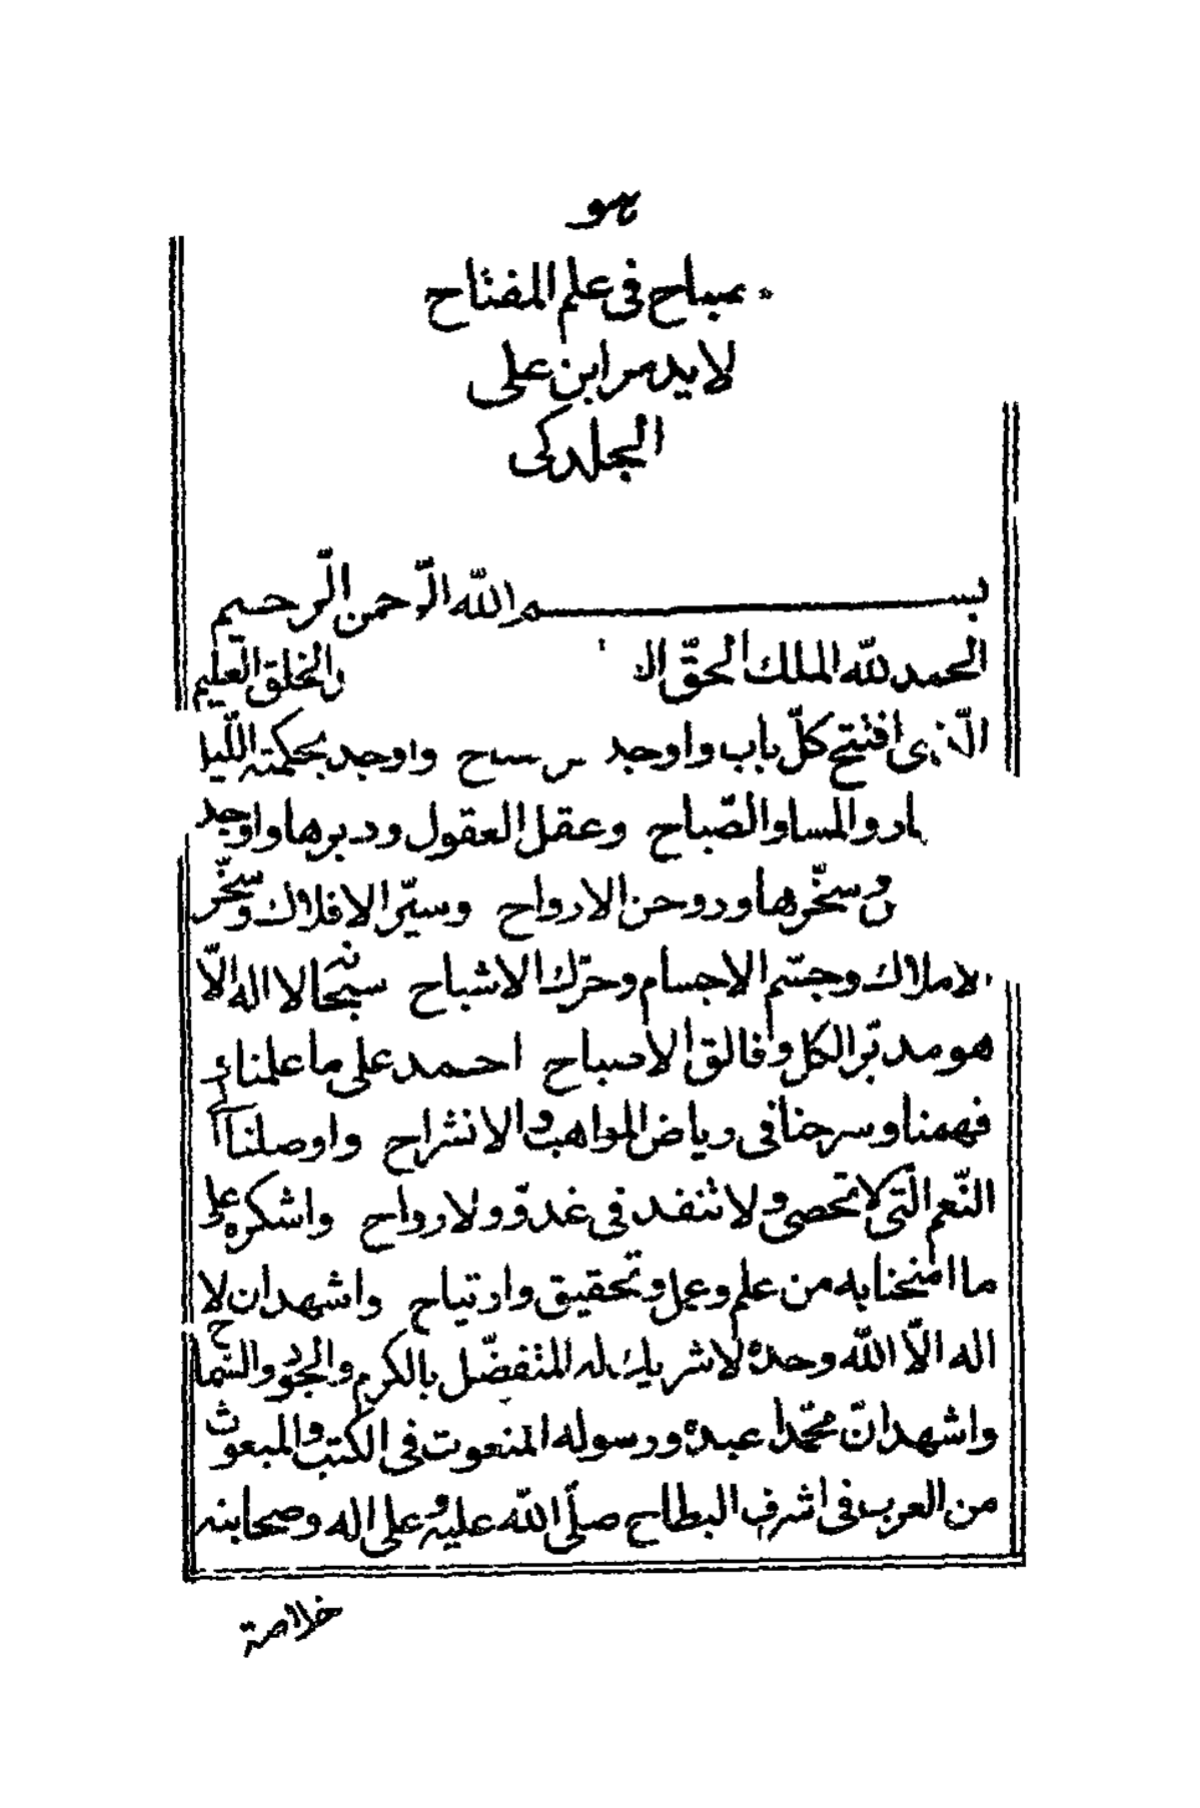 هو
مصباح فى علم المفتاح
لايدمر ابن على
الجلدكى
بسم الله الرّحمن الرّحيم
الحمد لله الملك الحقّ والخلق العليم
الّذى افتتح كلّ باب واوجد واوجد بحكمته اللّيا
والمسا والصّباح وعقل العقول ودبرها واوجد
وسخّرها وروحن الارواح وسيّر الافلاك وسخّر
الاملاك وجسّم الاجسام وحرّك الاشباح سبحانه لا اله الّا
هو مدبّر الكل وفالق الاصباح احمد على ما علمنا و
فهمنا وسرحنا فى رياض المواهب والانشراح واوصلنا
النّعم الّتى لا تحصى ولا تنفد فى غدوّ ولا رواح واشكره على
ما امنحنا به من علم وعمل وتحقيق وارتياح واشهد ان لا
اله الّا الله وحده لا شريك له المتفضّل بالكرم والجود والسّماح
واشهد انّ محمّدا عبده ورسوله المنعوت فى الكتب والمبعوث
من العرب فى اشرف البطاح صلّى الله عليه وعلى اله وصحابته
خلاصة